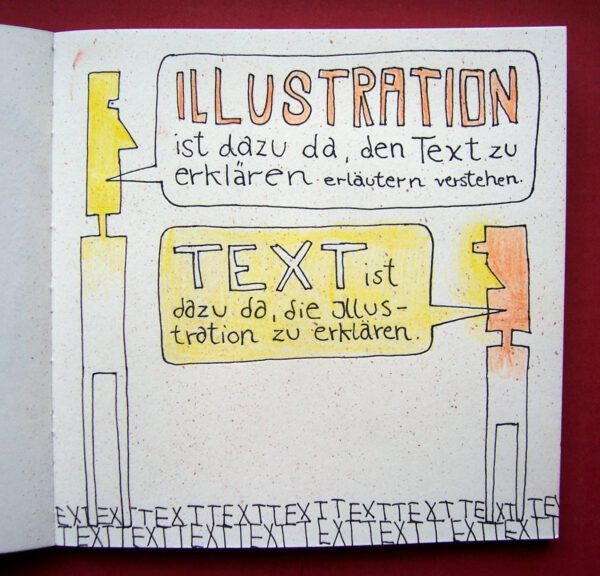 ILLUSTRATION
ist dazu da, den Text zu
erklären erläutern verstehen.
TEXT ist
dazu da, die Illus-
tration zu erklären.
TEXTTEXTTEXTTEXTTEXTTEXTTEXTTEXT
TEXTTEXTTEXTTEXTTEXTTEXTTEXTTEXT